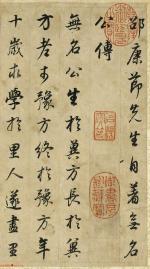 邵康節先生自著無名
公傳
無名公生於冀方長於冀
方老於豫方終於豫方年
十歲求學於里人遂盡里